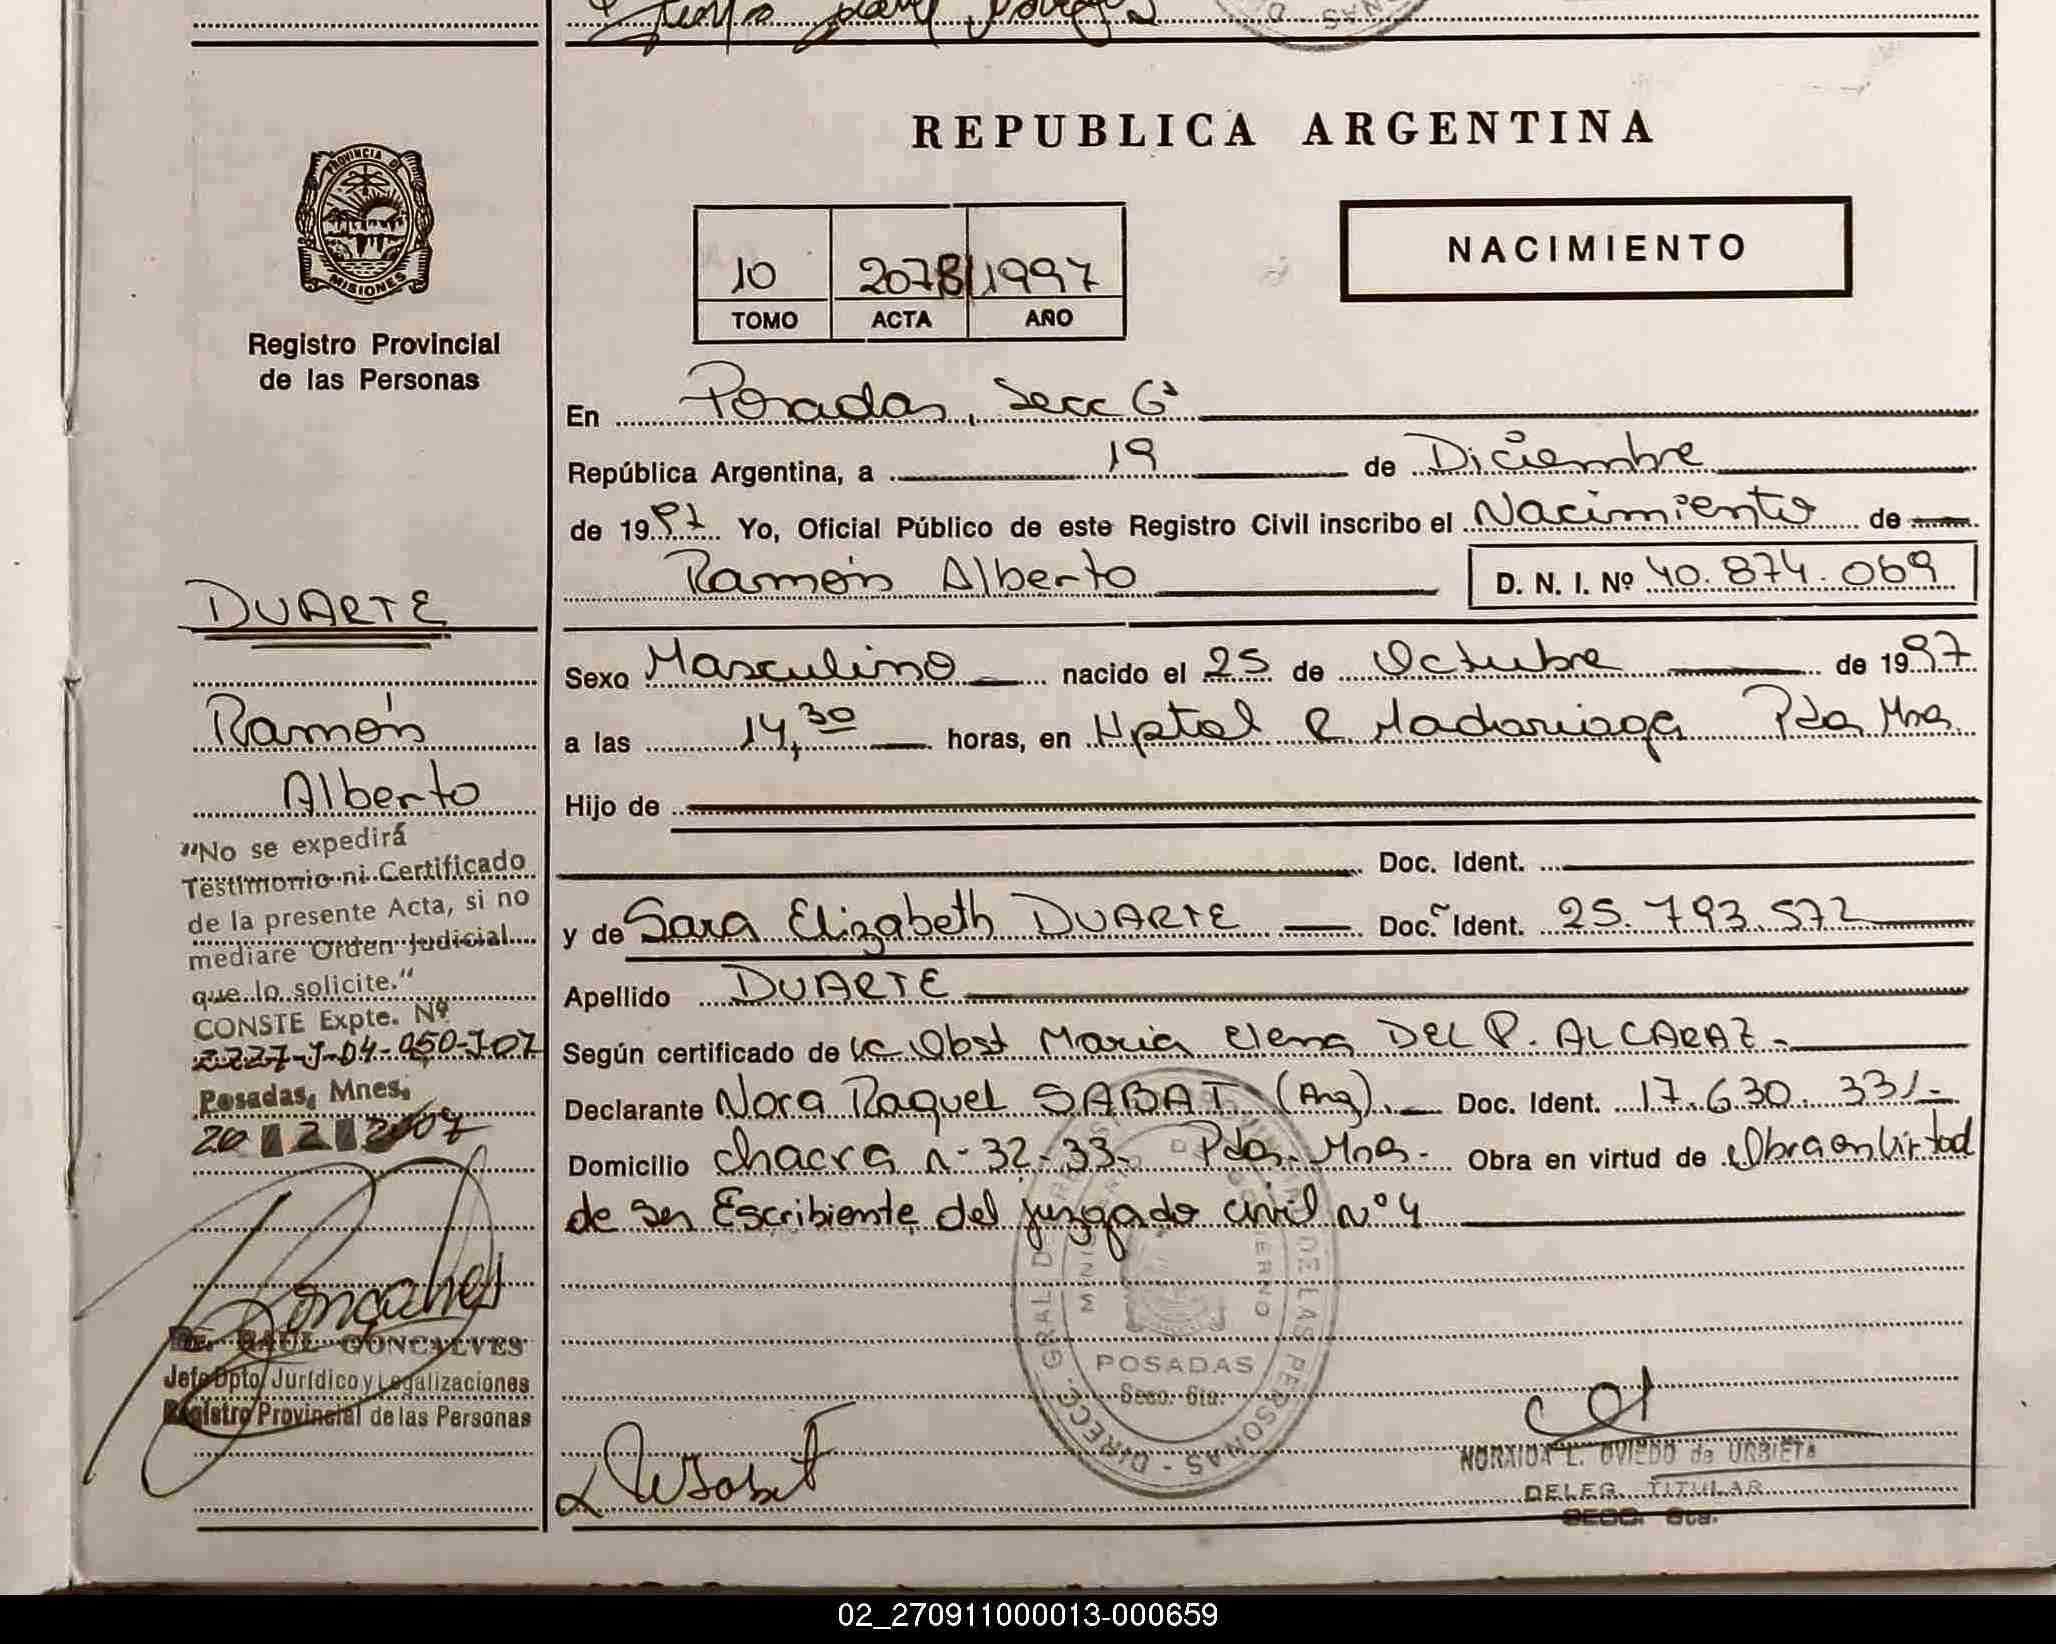 REPUBLICA ARGENTINA
PROVINCIA DE
MISIONES
Registro Provincial
de las Personas
10 2078 1997
TOMO ACTA AÑO
NACIMIENTO
En Posadas, Secc 6ª
República Argentina, a 19 de Diciembre
de 1997 Yo, Oficial Público de este Registro Civil inscribo el Nacimiento de
Ramón Alberto D. N. I. Nº 40.874.069
Sexo Masculino nacido el 25 de Octubre de 1997
a las 14,30 horas, en Hptal R Madariaga Pdas Mnes.
Hijo de
Doc. Ident.
y de Sara Elizabeth DUARTE Doc. Ident. 25.793.572
Apellido DUARTE
Según certificado de Lic Obst Maria Elena DEL P. ALCARAZ.-
Declarante Nora Raquel SABAT (Arg). Doc. Ident. 17.630.331.-
Domicilio chacra n- 32-33- Pdas. Mnes- Obra en virtud de Obra en Virtud
de ser Escribiente del juzgado civil nº 4
DUARTE
Ramón
Alberto
"No se expedirá
Testimonio ni Certificado
de la presente Acta, si no
mediare Orden Judicial
que lo solicite."
CONSTE Expte. Nº
2227-J-04-050-J07
Posadas, Mnes,
20 2 2007
Goncalves
Dr. RAUL GONCALVES
Jefe Dpto Jurídico y Legalizaciones
Registro Provincial de las Personas
DIRECC. GRAL DE LAS PERSONAS
MISIONES
GOBIERNO
POSADAS
Secc. 6ta.
NRSabat
NORAIDA L. OVIEDO de URBIETA
DELEG. TITULAR
SECC. 6ta.
02_270911000013-000659